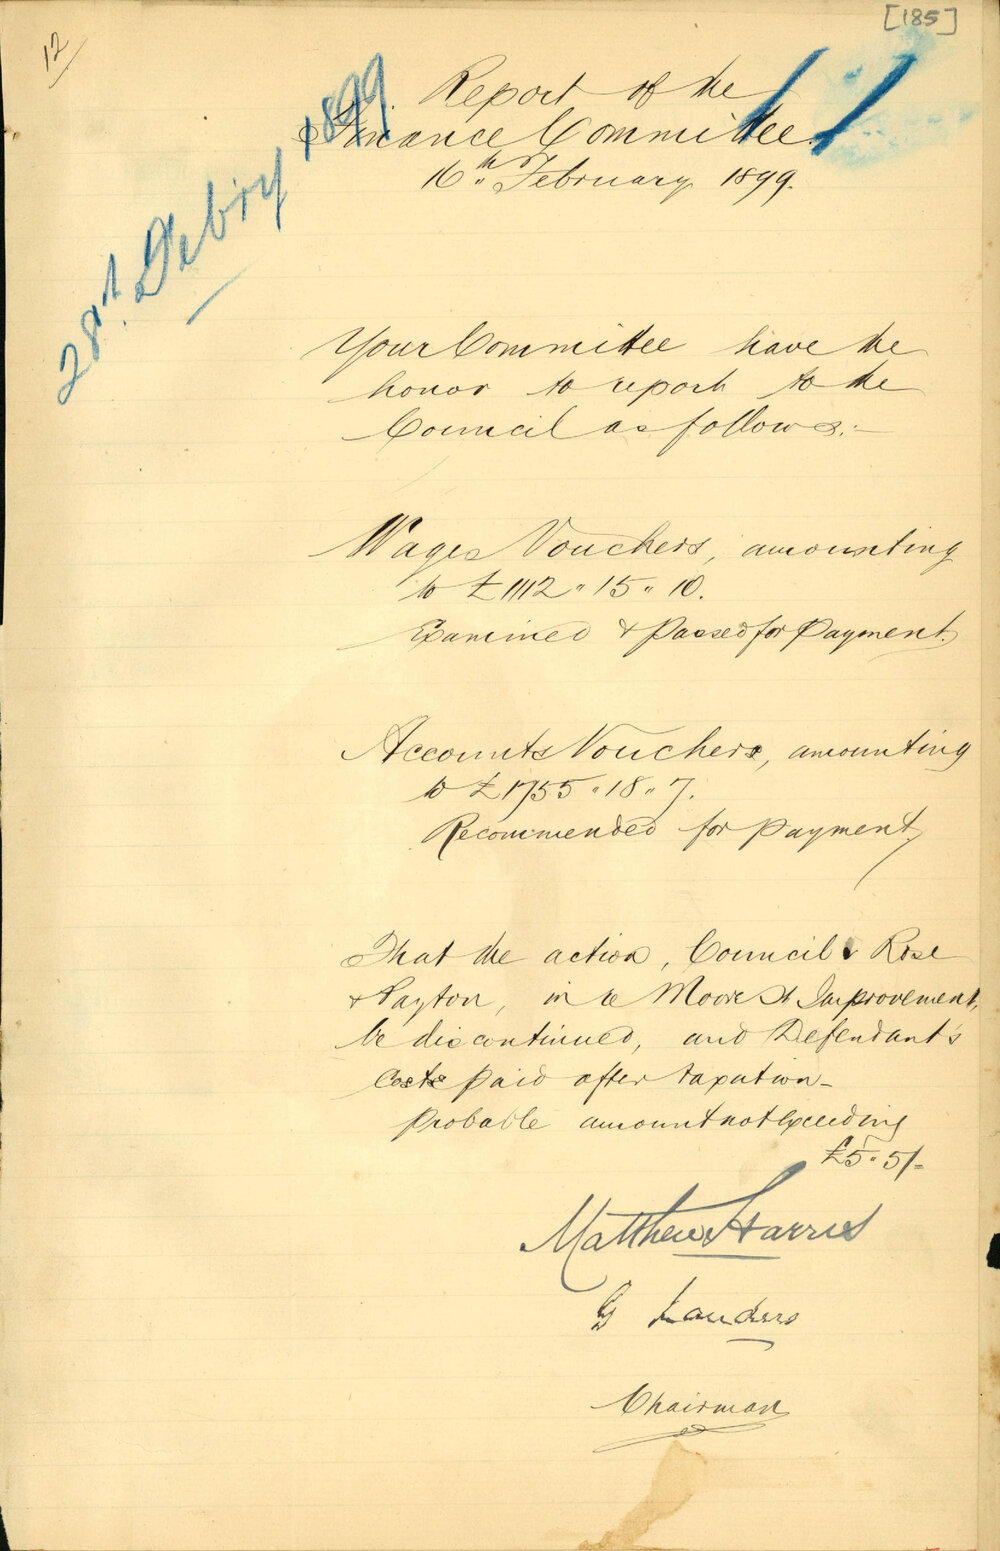 [185]
12
28th Febry 1899
Report of the
Finance Committee.
16th February 1899.
Your Committee have the
honor to report to the
Council as follows:-
Wages Vouchers, amounting
to £1112 " 15 " 10.
Examined & passed for payment.
Accounts Vouchers, amounting
to £1755 " 18 " 7.
Recommended for payment,
That the action, Council v Rose
& Payton, in re Moore St Improvement,
be discontinued, and Defendant's
Costs paid after taxation -
probable amount not exceeding
£5 " 5/-
Matthew Harris
G Landers
Chairman